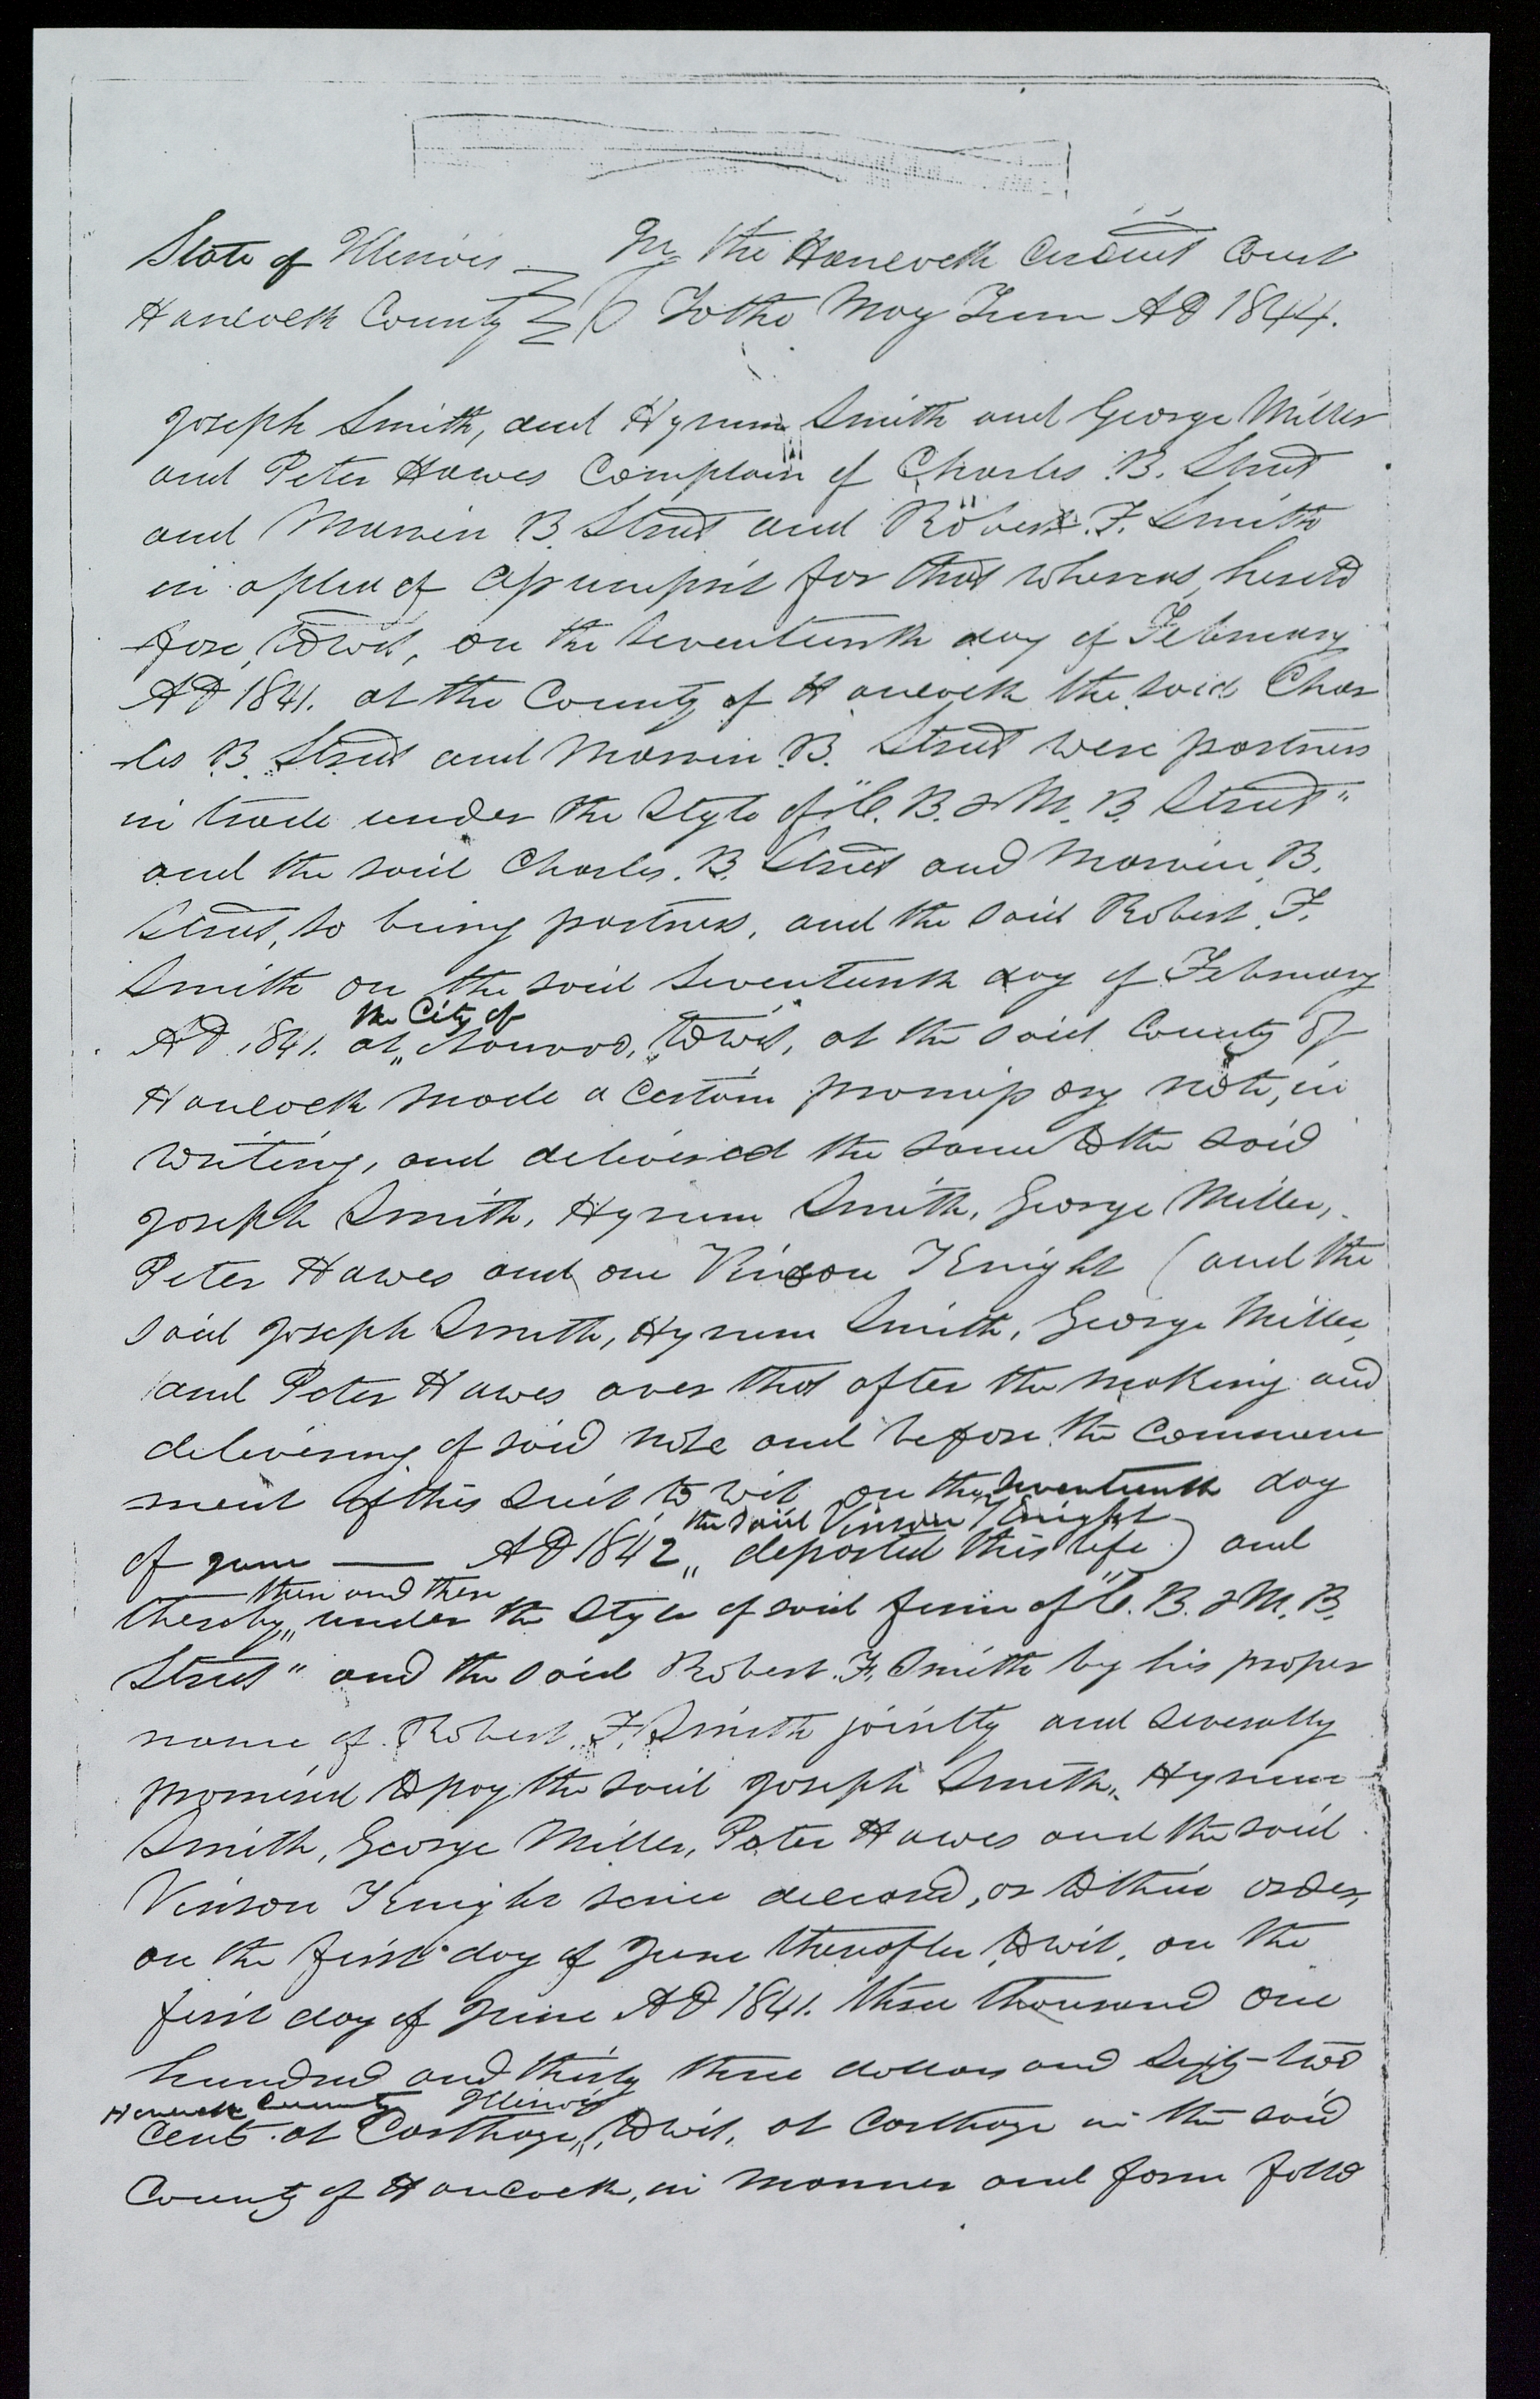 State of Illinois } In the Hancock Circuit Court
Hancock County } To the May Term AD 1844.
Joseph Smith, and Hyrum Smith and George Miller
and Peter Hawes Complain of Charles B. Street
and Marvin B. Street and Robert F. Smith
in a plea of Assumpsit for that whereas, hereto
-fore, towit, on the Seventeenth day of February
AD 1841. at the County of Hancock the said Char
-les B. Street and Marvin B. Street were partners
in trade under the Style of "C. B. & M. B. Street"
and the said Charles. B. Street and Marvin B.
Street, so being partners, and the said Robert. F.
Smith on the said Seventeenth day of February
the City of
AD. 1841. at Nauvoo, towit, at the said County of
Hancock made a certain promissory note, in
writing, and delivered the same to the said
Joseph Smith, Hyrum Smith, George Miller,
Peter Hawes and one Vinson Knight (and the
said Joseph Smith, Hyrum Smith, George Miller,
and Peter Hawes aver that after the making and
delivering of said note and before the commence
-ment of this Suit to wit on the Seventeenth day
the said Vinson Knight
of June — AD 1842 departed this life) and
then and there
thereby under the Style of said firm of "C. B. & M. B.
Street" and the said Robert. F. Smith by his proper
name of Robert. F. Smith jointly and severally
promised to pay the said Joseph Smith, Hyrum
Smith, George Miller, Peter Hawes and the said
Vinson Knight since deceased, or to their order,
on the first day of June thereafter, towit, on the
first day of June AD 1841. three thousand one
hundred and thirty three dollars and Sixty-two
Hancock County Illinois
Cents at Carthage, towit, at Carthage in the said
County of Hancock, in manner and form follo